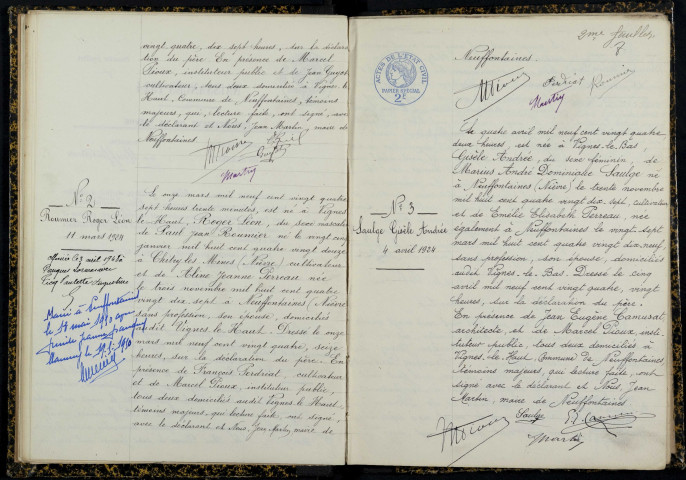 vingt quatre, dix sept heures, sur la déclara
tion du père. En présence de Marcel
Pioux, instituteur public et de Jean Guyot
cultivateur, tous deux domiciliés à Vignes le
Haut, Commune de Neuffontaines, témoins
majeurs, qui, lecture faite, ont signé, avec
le déclarant et Nous, Jean Martin, maire de
Neuffontaines.
Martin
N° 2
Rounier Roger Léon
11 mars 1924
Le onze mars mil neuf cent vingt quatre
sept heures trente minutes, est né à Vignes
le Haut, Roger Léon, du sexe masculin
de Paul Jean Rounier, né le vingt cinq
janvier mil huit cent quatre vingt douze
à Chitry les Mines (Nièvre) cultivateur
et de Aline Jeanne Perreau née
le trois novembre mil huit cent quatre
vingt dix sept à Neuffontaines (Nièvre)
sans profession, son épouse, domiciliés
audit Vignes le Haut. Dressé le onze
mars mil neuf cent vingt quatre, seize
heures, sur la déclaration du père. En
présence de François Perdriat, cultivateur
et de Marcel Pioux, instituteur public,
tous deux domiciliés audit Vignes le Haut
témoins majeurs, qui, lecture faite, ont signé,
avec le déclarant et Nous, Jean Martin, maire de
Marié à Neuffontaines
ACTES DE L'ÉTAT CIVIL
PAPIER SPÉCIAL
2F
2me feuillet
Neuffontaines.
Perdriat Rounier
Martin
N° 3
Saulge Gisèle Andrée
4 avril 1924
Le quatre avril mil neuf cent vingt quatre
deux heures, est née à Vignes le Bas,
Gisèle Andrée, du sexe féminin, de
Marius André Dominique Saulge né
à Neuffontaines (Nièvre) le trente novembre
mil huit cent quatre vingt dix sept, cultivateur
et de Emélie Elisabeth Perreau, née
également à Neuffontaines le vingt sept
mars mil huit cent quatre vingt dix neuf,
sans profession, son épouse, domiciliés
audit Vignes le Bas. Dressé le cinq
avril mil neuf cent vingt quatre, vingt
heures, sur la déclaration du père.
En présence de Jean Eugène Camusat
architecte, et de Marcel Pioux, insti-
tuteur public, tous deux domiciliés à
Vignes le Haut Commune de Neuffontaines,
témoins majeurs, qui lecture faite, ont
signé avec le déclarant et Nous, Jean
Martin, maire de Neuffontaines
Saulge
Martin